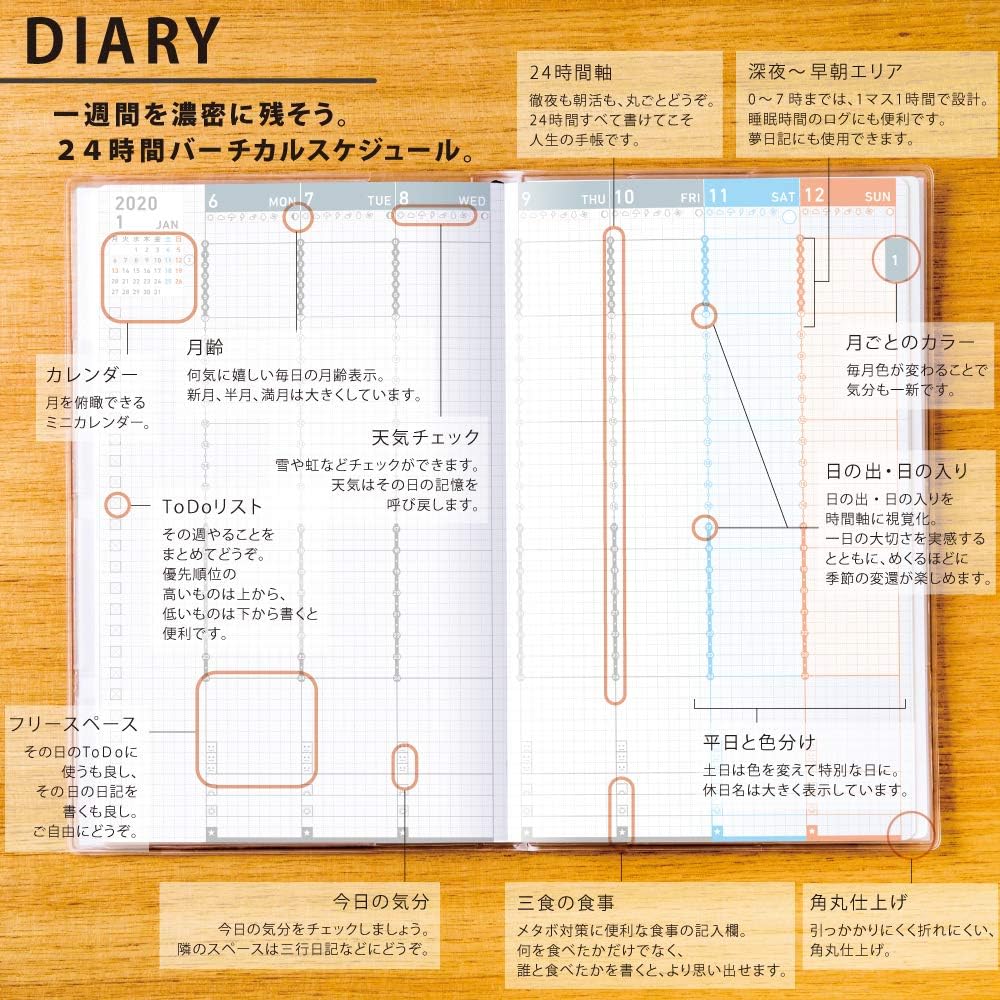 DIARY
一週間を濃密に残そう。
２４時間バーチカルスケジュール。
24時間軸
徹夜も朝活も、丸ごとどうぞ。
24時間すべて書けてこそ
人生の手帳です。
深夜〜早朝エリア
0〜7時までは、1マス1時間で設計。
睡眠時間のログにも便利です。
夢日記にも使用できます。
2020
1 JAN
月 火 水 木 金 土 日
1 2 3 4 5
6 7 8 9 10 11 12
13 14 15 16 17 18 19
20 21 22 23 24 25 26
27 28 29 30 31
6 MON
7 TUE
8 WED
9 THU
10 FRI
11 SAT
12 SUN
1
カレンダー
月を俯瞰できる
ミニカレンダー。
月齢
何気に嬉しい毎日の月齢表示。
新月、半月、満月は大きくしています。
月ごとのカラー
毎月色が変わることで
気分も一新です。
天気チェック
雪や虹などチェックができます。
天気はその日の記憶を
呼び戻します。
日の出・日の入り
日の出・日の入りを
時間軸に視覚化。
一日の大切さを実感する
とともに、めくるほどに
季節の変還が楽しめます。
ToDoリスト
その週やることを
まとめてどうぞ。
優先順位の
高いものは上から、
低いものは下から書くと
便利です。
フリースペース
その日のToDoに
使うも良し、
その日の日記を
書くも良し。
ご自由にどうぞ。
平日と色分け
土日は色を変えて特別な日に。
休日名は大きく表示しています。
今日の気分
今日の気分をチェックしましょう。
隣のスペースは三行日記などにどうぞ。
三食の食事
メタボ対策に便利な食事の記入欄。
何を食べたかだけでなく、
誰と食べたかを書くと、より思い出せます。
角丸仕上げ
引っかかりにくく折れにくい、
角丸仕上げ。